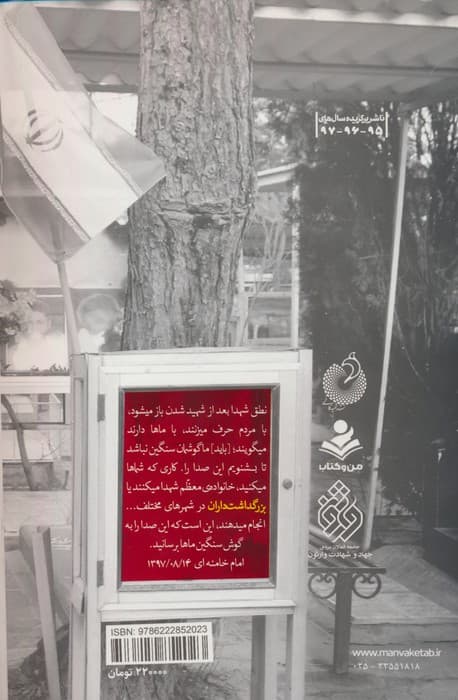 ناشر برگزیده سال‌های
۹۵-۹۶-۹۷
نطق شهدا بعد از شهید شدن باز میشود،
با مردم حرف میزنند، با ماها دارند
میگویند؛ [باید] ما گوشمان سنگین نباشد
تا بشنویم این صدا را. کاری که شماها
میکنید، خانواده‌ی معظّم شهدا میکنند یا
بزرگداشت‌داران در شهرهای مختلف...
انجام میدهند، این است که این صدا را به
گوش سنگین ماها برسانید.
امام خامنه ای ۱۳۹۷/۰۸/۱۴
من و کتاب
جهاد و شهادت وارثون
ISBN: 9786222852023
۲۲۰۰۰۰ تومان
www.manvaketab.ir
۰۲۵ - ۳۳۵۵۱۸۱۸